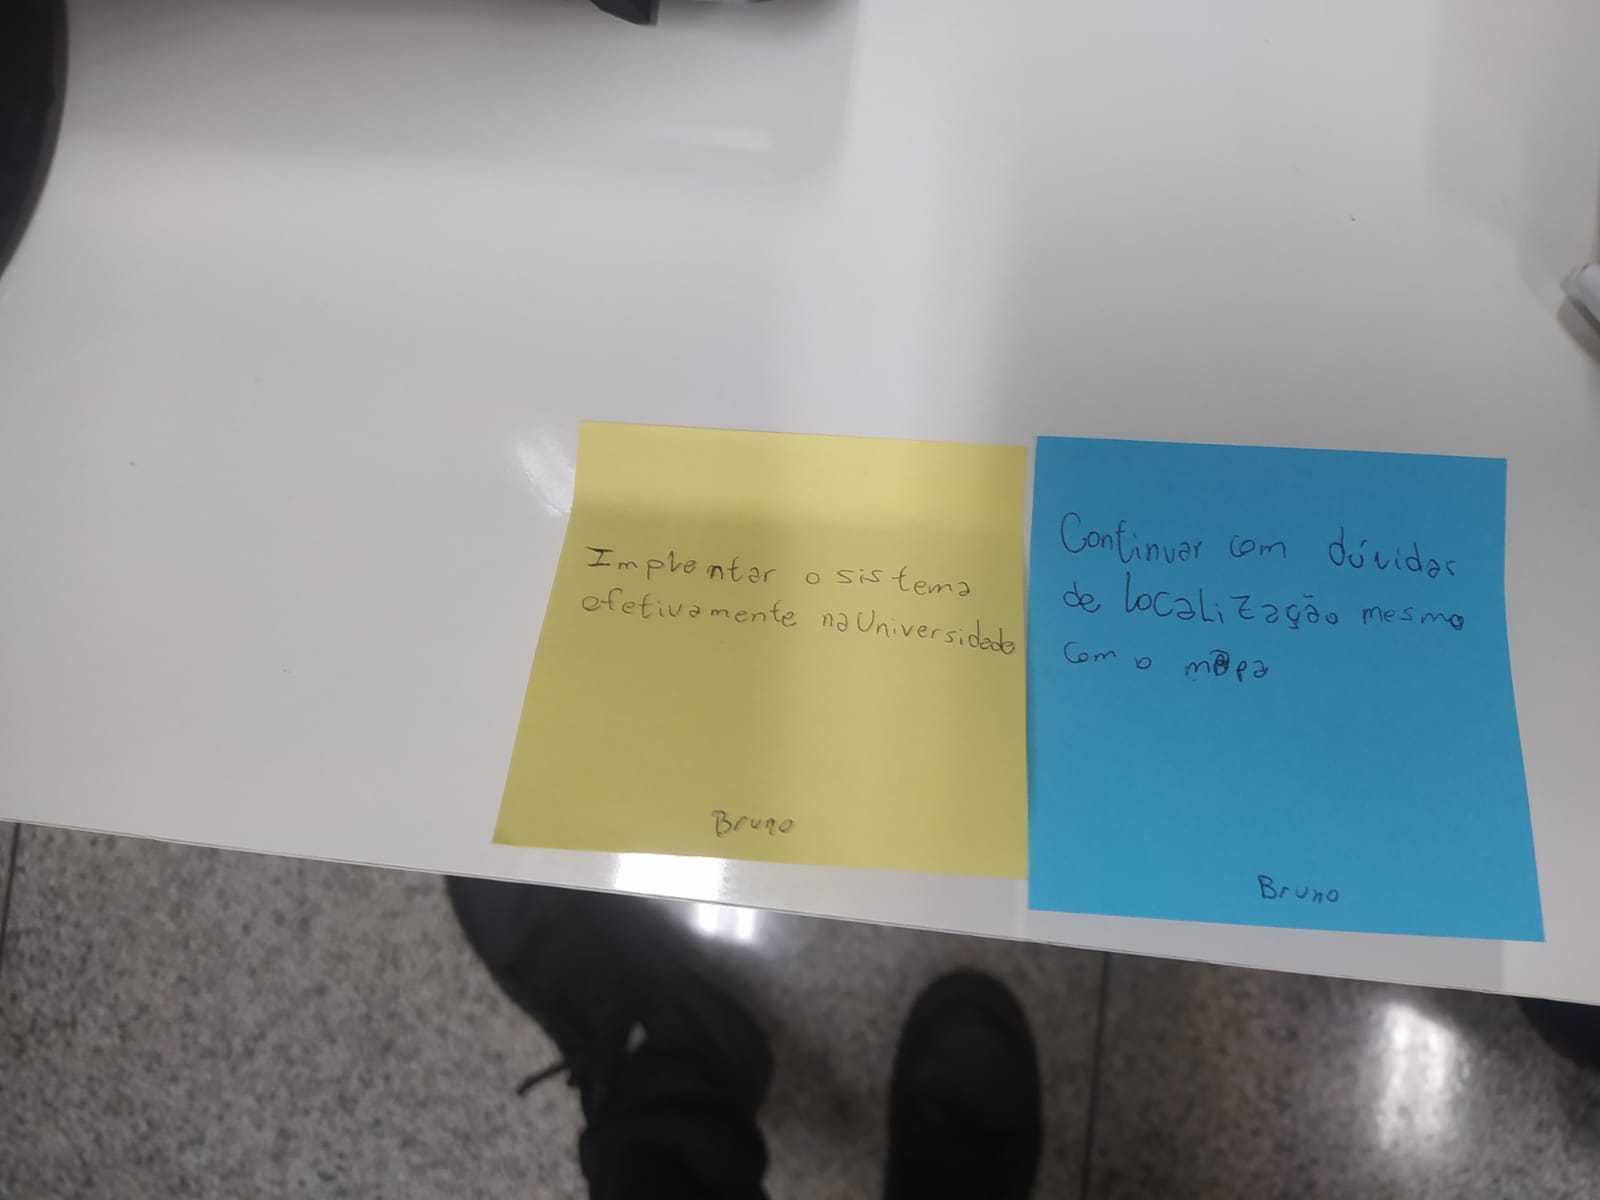 Implentar o sistema
efetivamente na Universidade
Bruno
Continuar com dúvidas
de localização mesmo
com o mapa
Bruno